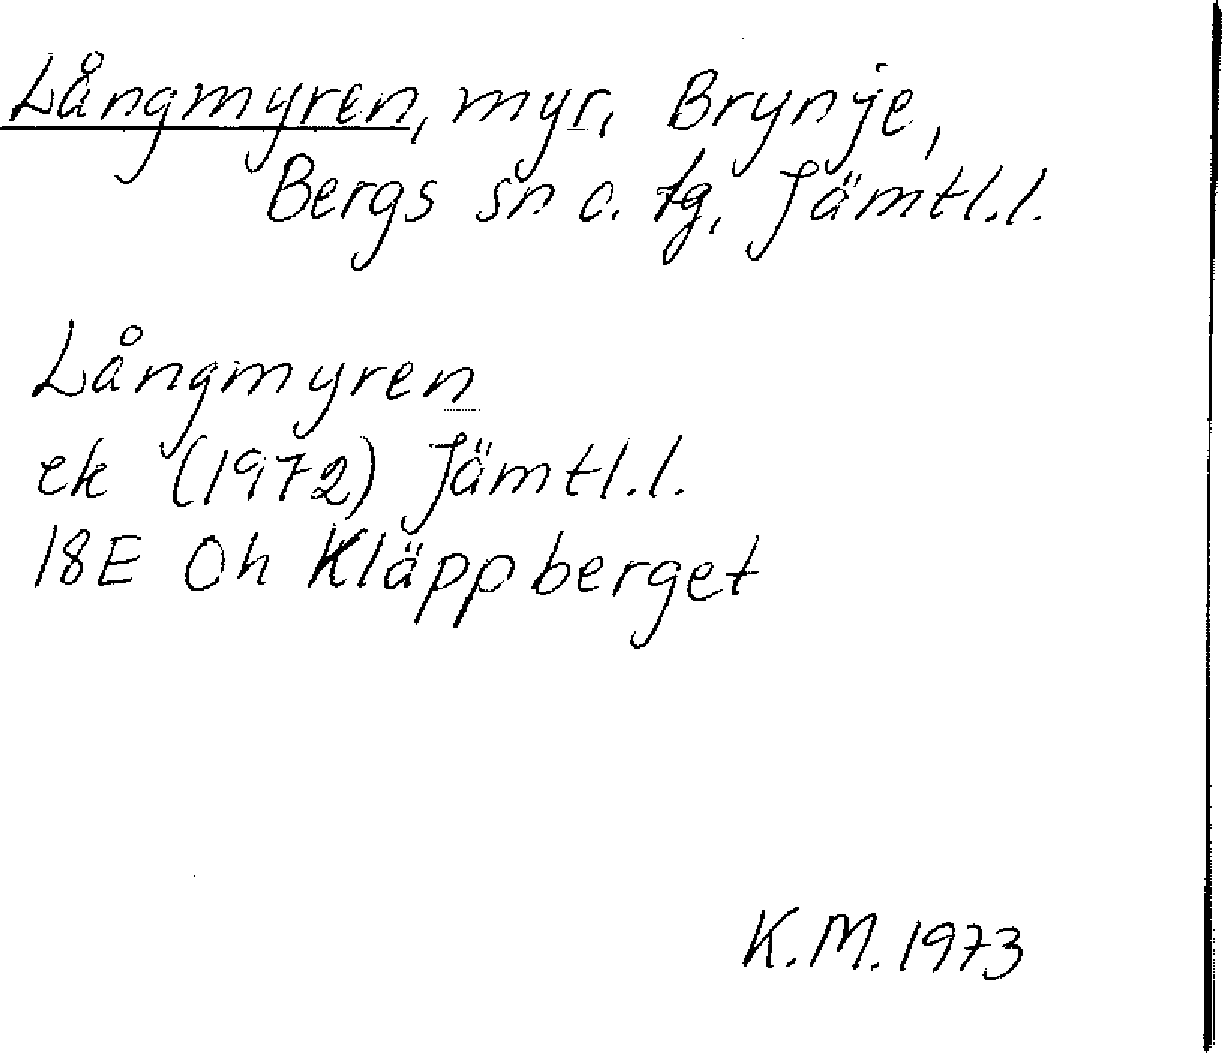 Långmyren, myr, Brynje,
Bergs sn o. tg, Jämtl.l.
Långmyren
ek (1972) Jämtl.l.
18E 0h Kläppberget
K.M. 1973